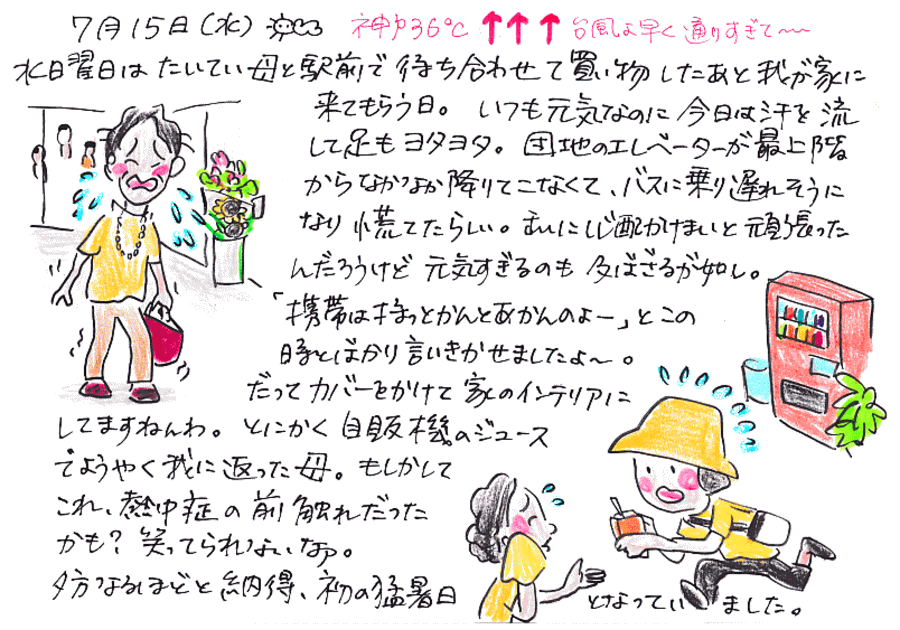 7月15日(水) 神戸36℃ ↑↑↑ 台風よ早く通りすぎて〜〜
水曜日はたいてい母と駅前で待ち合わせて買い物したあと我が家に
来てもらう日。いつも元気なのに今日は汗を流
して足もヨタヨタ。団地のエレベーターが最上階
からなかなか降りてこなくて、バスに乗り遅れそうに
なり慌ててたらしい。むいに心配かけまいと頑張った
んだろうけど 元気すぎるのも 及ばざるが如し。
「携帯は持っとかんとあかんのよー」とこの
時とばかり言いきかせましたよ〜。
だってカバーをかけて家のインテリアに
してますねんわ。とにかく自販機のジュース
でようやく我に返った母。もしかして
これ、熱中症の前触れだった
かも?笑ってられないなぁ。
夕方なるほどと納得、初の猛暑日
となってい ました。